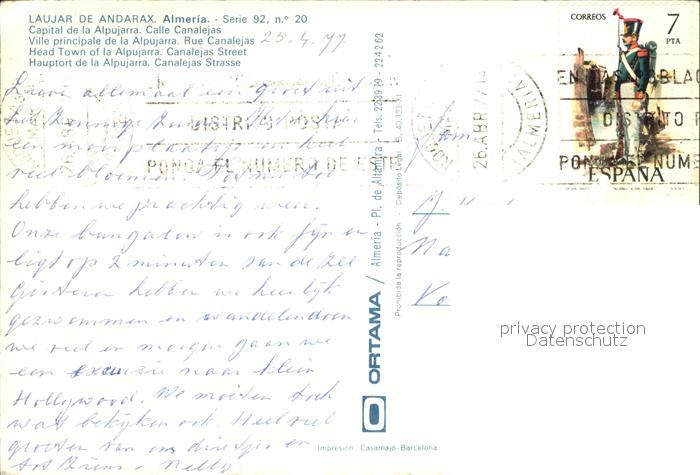 LAUJAR DE ANDARAX. Almería. - Serie 92, n.º 20
Capital de la Alpujarra. Calle Canalejas
Ville principale de la Alpujarra. Rue Canalejas
Head Town of la Alpujarra. Canalejas Street
Hauptort de la Alpujarra. Canalejas Strasse
25.4.77
Lieve allemaal een groet uit
het zonnige
een
veel bloemen. tot nu toe
hebben we prachtig weer.
Onze bungalow is ook fijn en
ligt op 2 minuten van de zee
Gisteren hebben we heerlijk
gezwommen en wandelen doen
we veel en morgen gaan we
een excursie naar klein
Hollywood. We moeten toch
wat bekijken ook. Heel veel
groeten van ons en
tot ziens - Nelly
DISTRITO POSTAL
PONGA EL NUMERO DE ESTE
ORTAMA / Almería - Pl. de Altamira - Tels.
Prohibida la reproducción - Depósito Legal B.
Impresión: Casamajó-Barcelona
CORREOS 7 PTA
ESPAÑA
26 ABR 77
(ALMERIA)
EN
DISTRITO P
PONGA EL NUME
Fam
J.
Na
Vo
privacy protection
Datenschutz